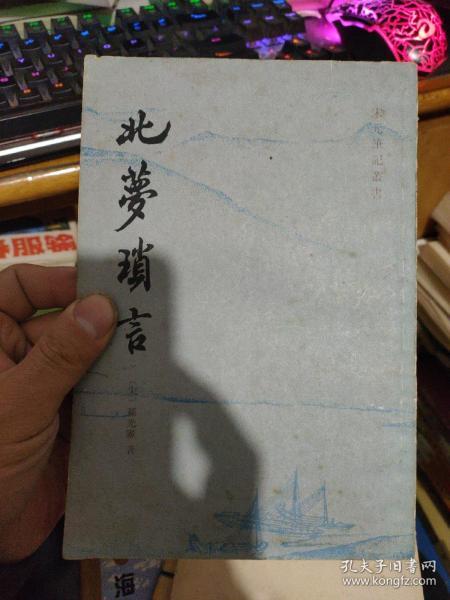 宋元筆記叢書
北夢瑣言
〔宋〕孫光憲 著
海
孔夫子旧书网
www.kongfz.com